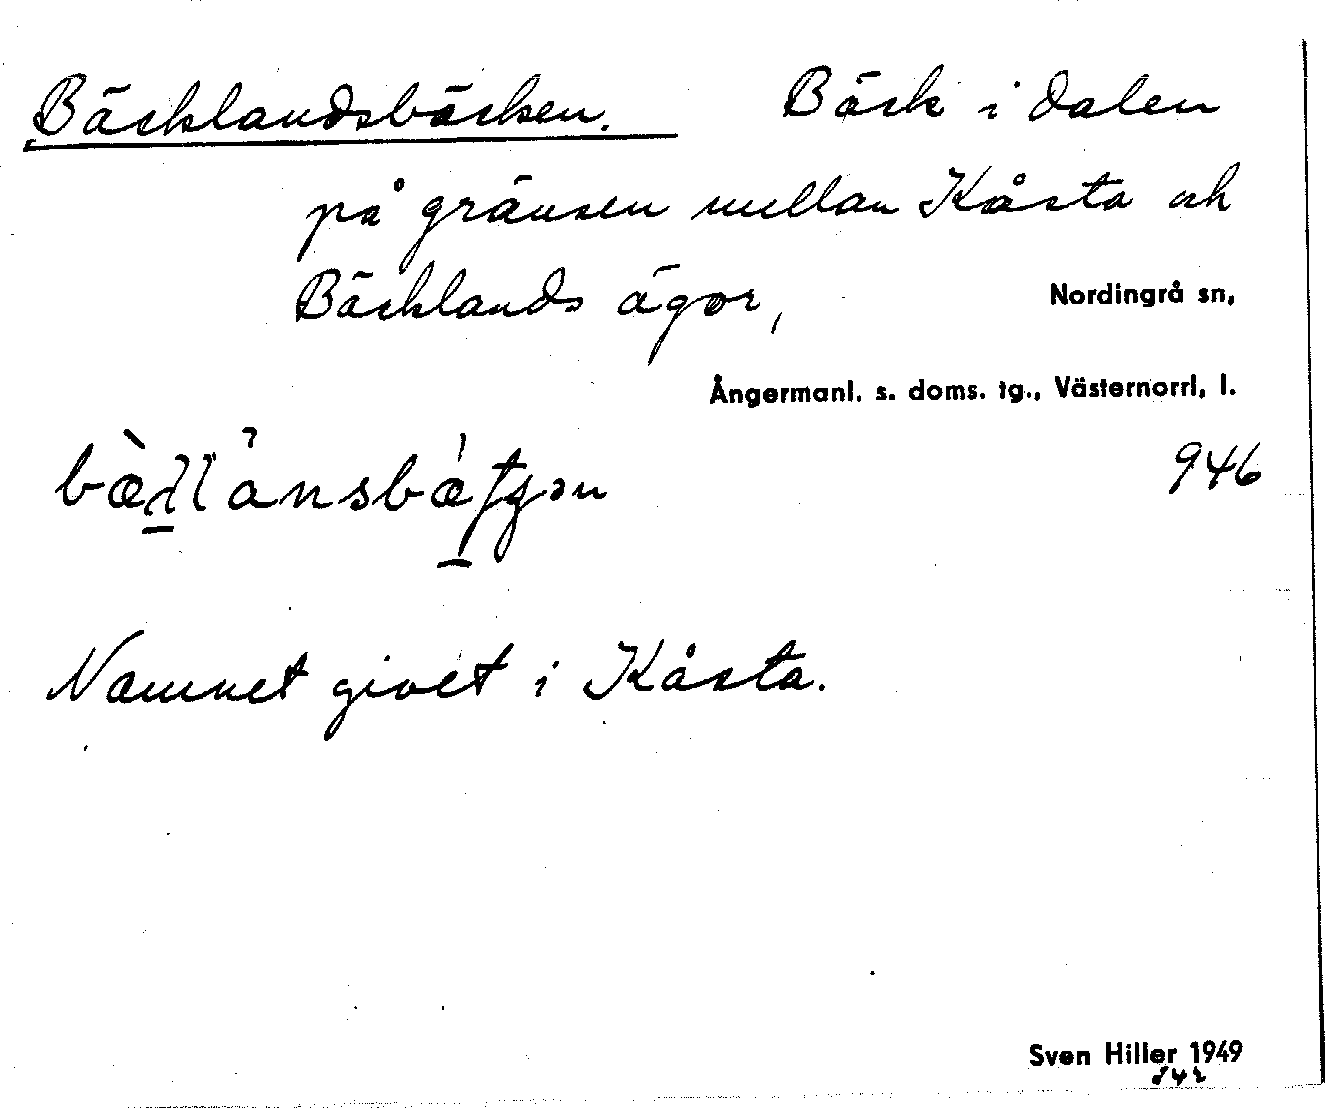 Bäcklandsbäcken. Bäck i dalen
på gränsen mellan Kåsta och
Bäcklands ägor,
Nordingrå sn,
Ångermanl. s. doms. tg., Västernorrl. l.
946
Namnet givet i Kåsta.
Sven Hiller 1949